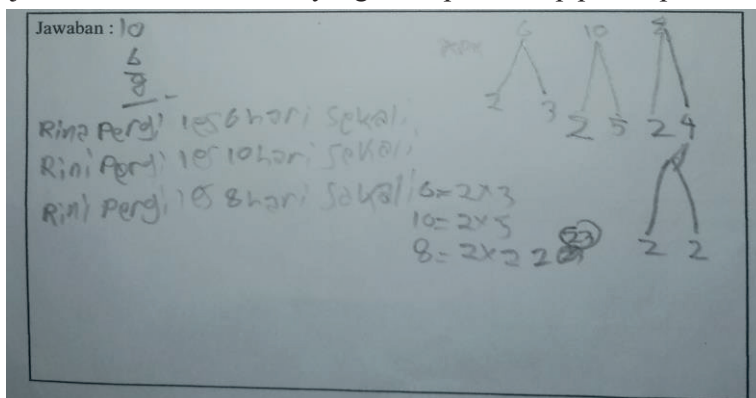 Jawaban : 10
6
8
Rina Pergi les 6 hari sekali
Rini Pergi les 10 hari sekali
Rini Pergi les 8 hari sekali
6 10 8
2 3 2 5 2 4
2 2
6= 2×3
10= 2×5
8= 2×2 2